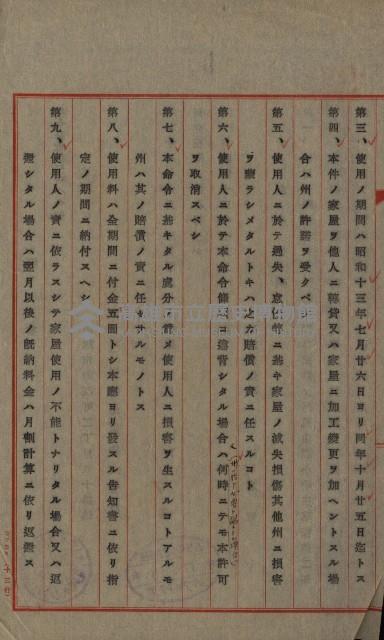 第三、使用ノ期間ハ昭和十三年七月廿六日ヨリ同年十月廿五日迄トス
第四、本件ノ家屋ヲ他人ニ轉貸又ハ家屋ニ加工變更ヲ加ヘントスル場
合ハ州ノ許諾ヲ受クベ
第五、使用人ニ於テ過失、怠慢等ニ基キ家屋ノ滅失損傷其他州ニ損害
ヲ蒙ラシメタルトキハ之カ賠償ノ責ニ任スルコト
第六、使用人ニ於テ本命令條項ニ違背シタル場合ハ何時ニテモ本許可
ヲ取消スベシ
第七、本命令ニ基キタル處分ノ爲メ使用人ニ損害ヲ生スルコトアルモ
州ハ其ノ賠償ノ責ニ任セサルモノトス
第八、使用料ハ全期間ニ付金五圓トシ本廳ヨリ發スル告知書ニ依リ指
定ノ期間ニ納付スヘシ
第九、使用人ノ責ニ依ラスシテ家屋使用ノ不能トナリタル場合又ハ返
還シタル場合ハ翌月以後ノ既納料金ハ月割計算ニ依リ返還ス
高雄市立歷史博物館